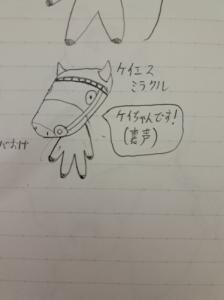 ケイエス
ミラクル
ケイちゃんです!
(裏声)